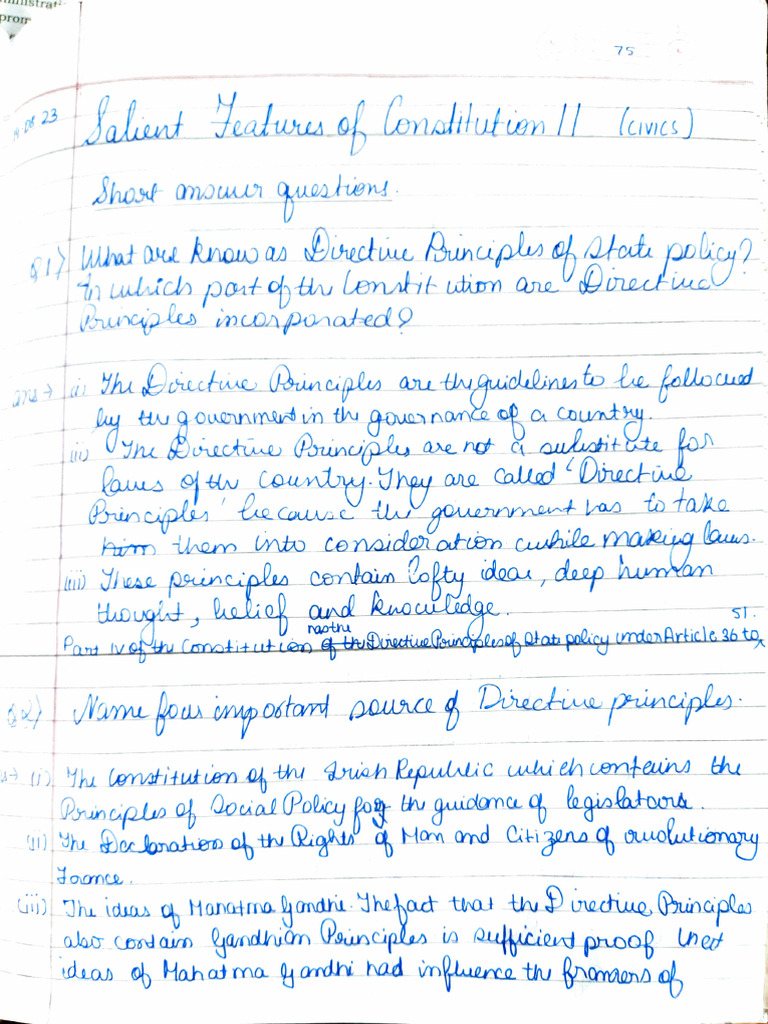 ministrat
prom
75
14.08.23
Salient Features of Constitution II (CIVICS)
Short answer questions.
Q1) What are know as Directive Principles of State policy?
In which part of the Constitution are Directive
Principles incorporated?
ans → (i) The Directive Principles are the guidelines to be followed
by the government in the governance of a country.
(ii) The Directive Principles are not a substitute for
laws of the country. They are called 'Directive
Principles' because the government has to take
him them into consideration while making laws.
(iii) These principles contain lofty idea, deep human
thought, belief and knowledge.
51.
has the
Part IV of the Constitution of the Directive Principles of State policy under Article 36 to
Q2) Name four important source of Directive principles.
(i) The Constitution of the Irish Republic which contains the
Principles of Social Policy for the guidance of legislators.
(ii) The Declaration of the Rights of Man and Citizens of revolutionary
France.
(iii) The ideas of Mahatma Gandhi. The fact that the Directive Principles
also contain Gandhian Principles is sufficient proof that
ideas of Mahatma Gandhi had influence the framers of